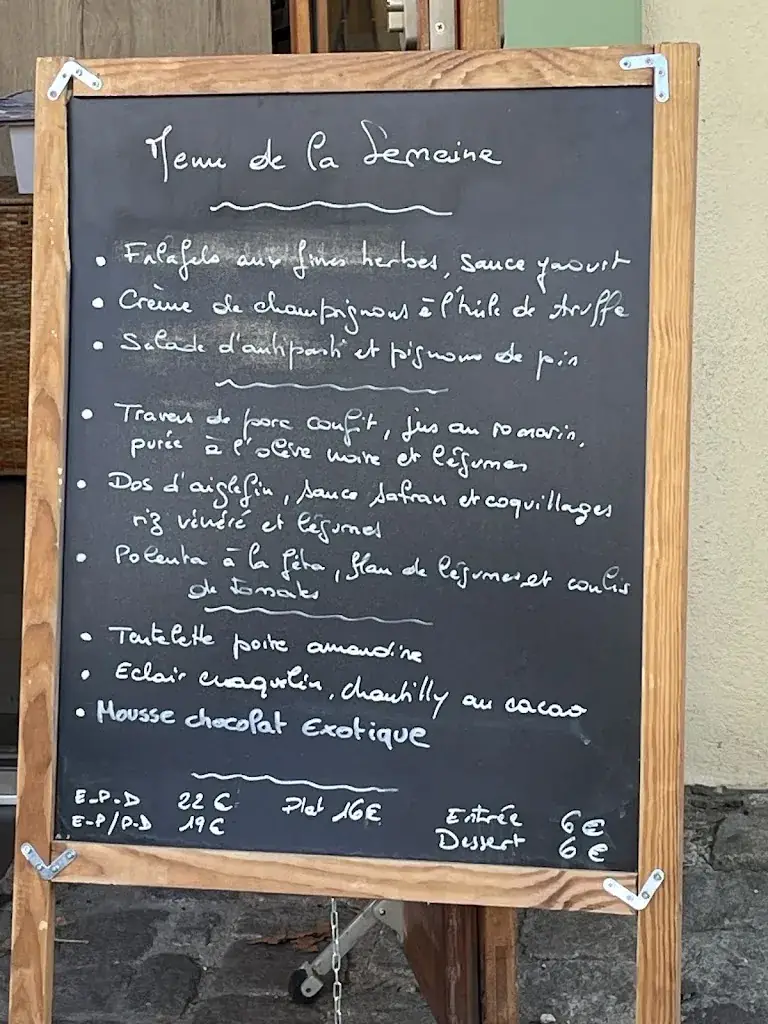 Menu de la Semaine
• Falafels aux fines herbes, sauce yaourt
• Crème de champignons à l'huile de truffe
• Salade d'antipasti et pignons de pin
• Travers de porc confit, jus au romarin,
purée à l'olive noire et légumes
• Dos d'aiglefin, sauce safran et coquillages
riz vénéré et légumes
• Polenta à la féta, flan de légumes et coulis
de tomates
• Tartelette poire amandine
• Eclair craquelin, chantilly au cacao
• Mousse chocolat Exotique
E-P-D 22€ Plat 16€ Entrée 6€
E-P/P-D 19€ Dessert 6€